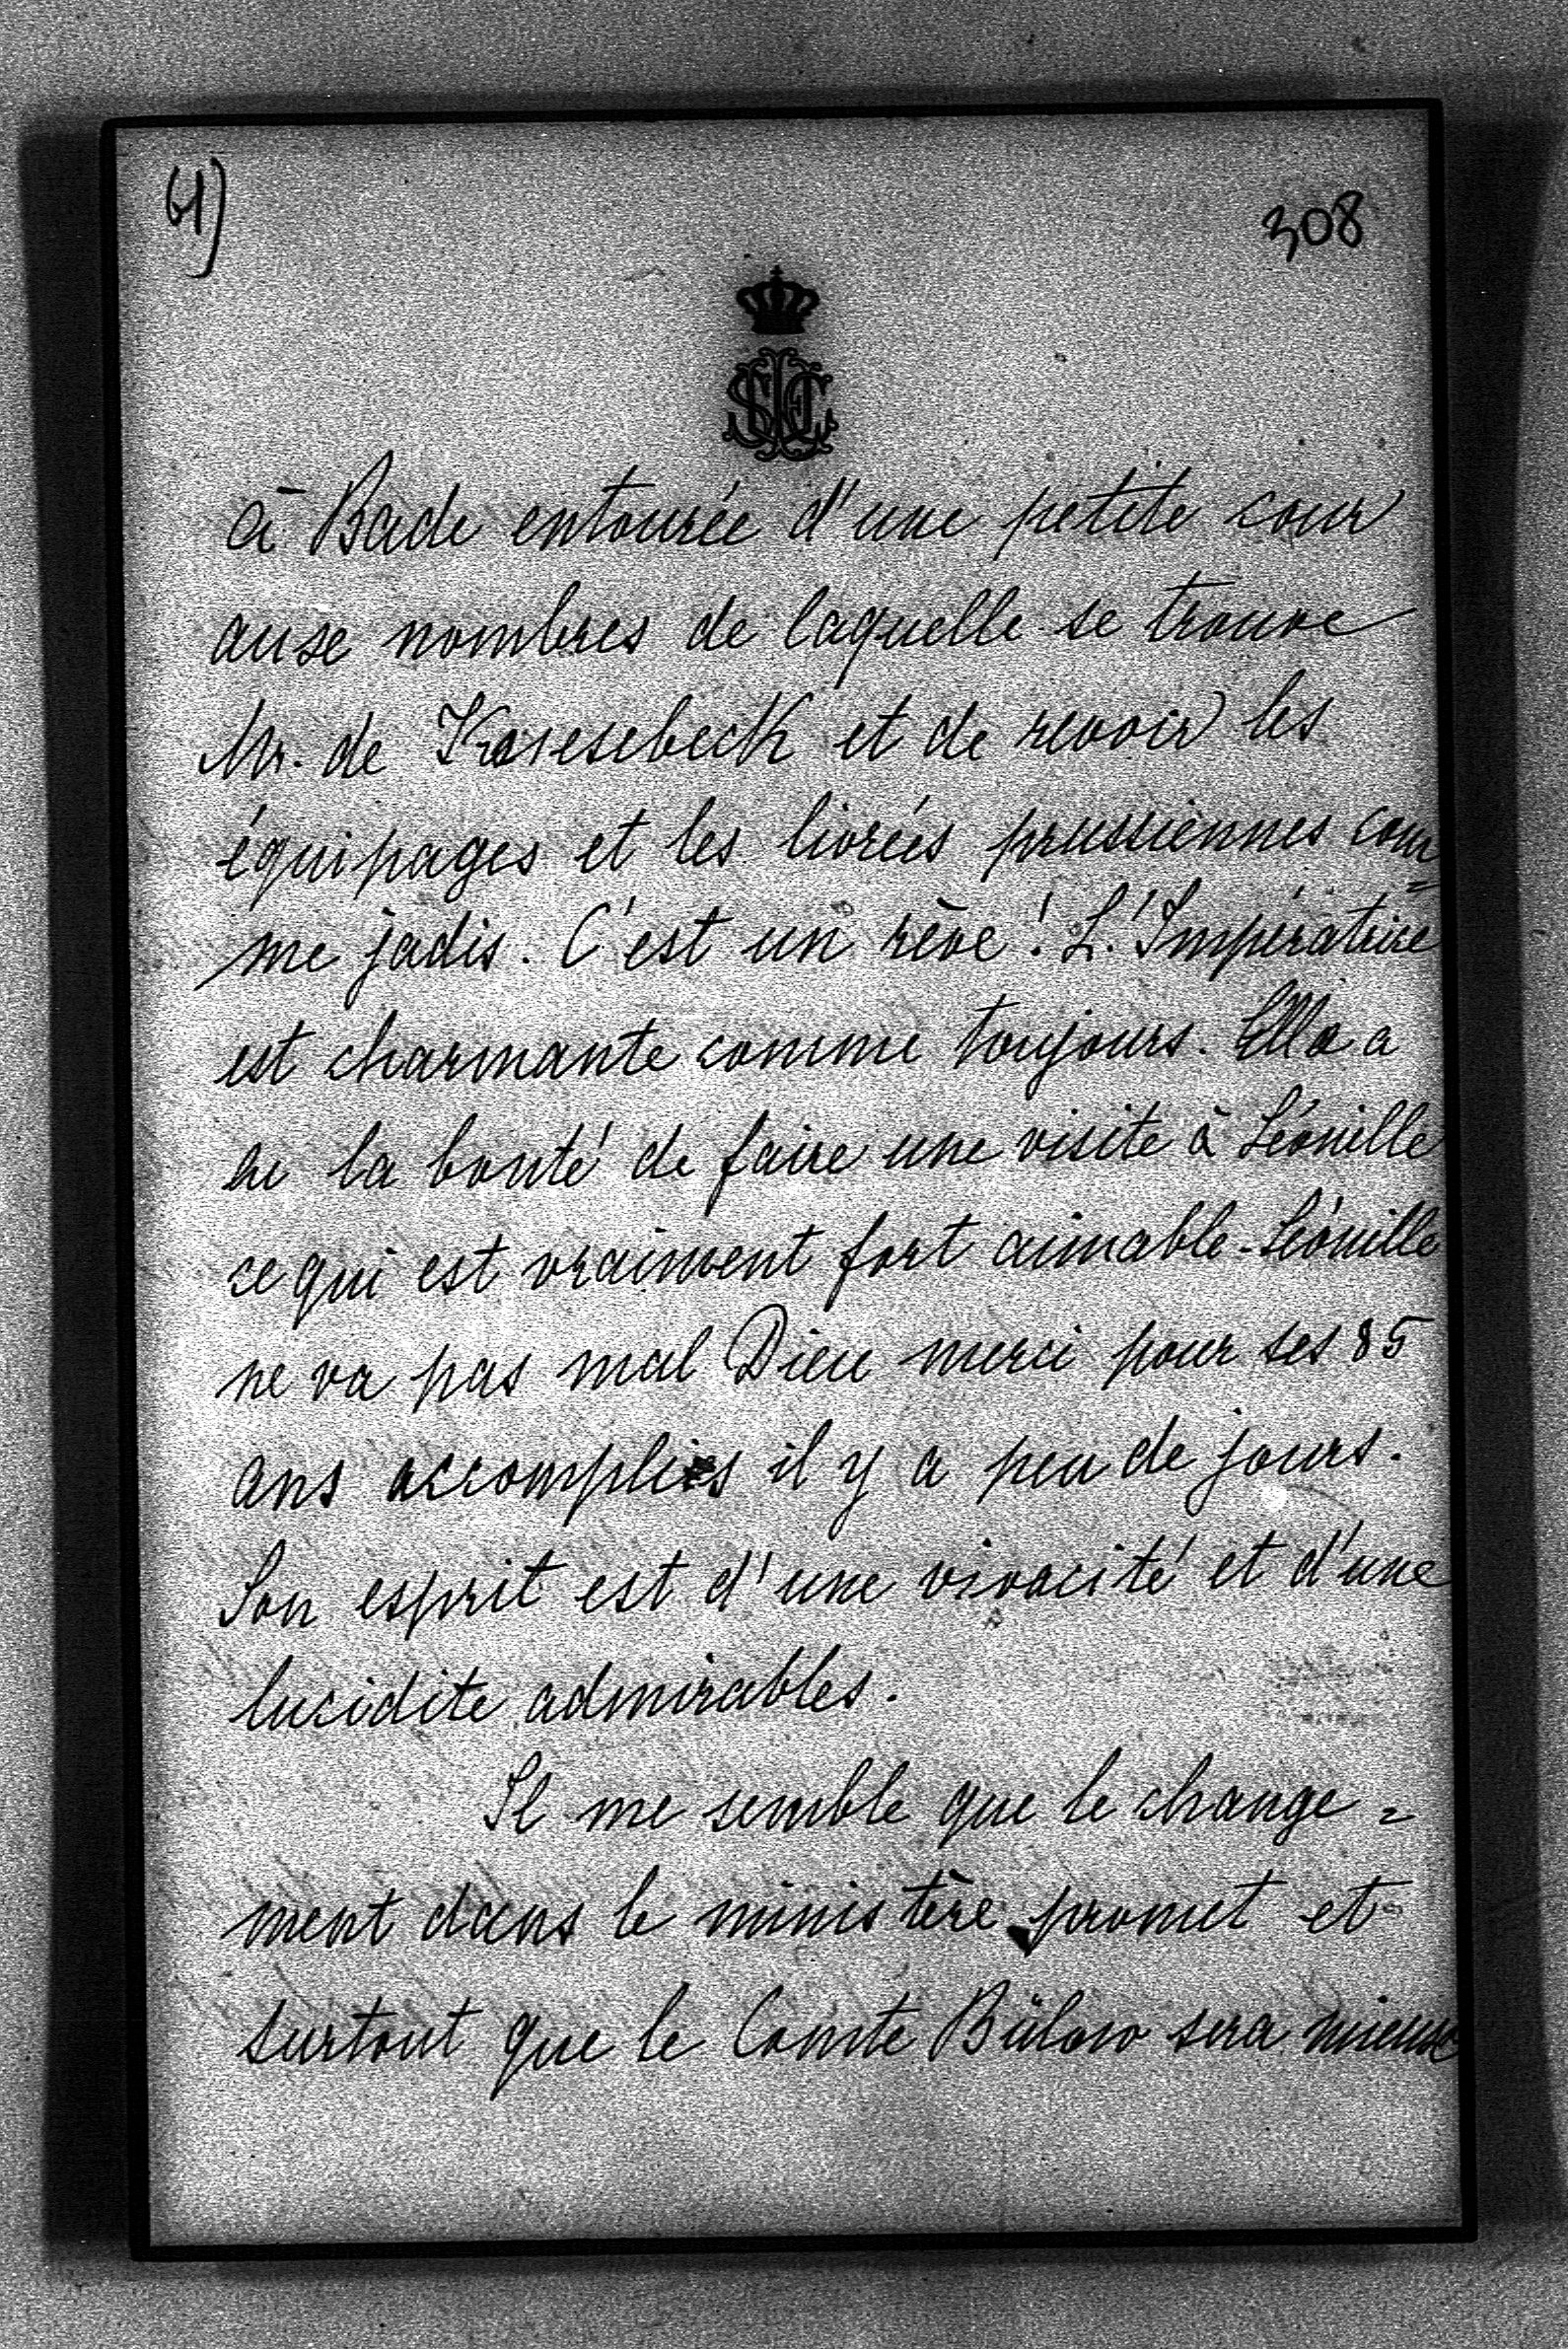 61)
308
à Bade entourée d'une petite cour
auxe nombres de laquelle se trouve
Mr. de Knesebeck et de revoir les
équipages et les livrées prussiennes com=
me jadis. C'est un rêve! L'Impératrice
est charmante comme toujours. Elle a
eu la bonté de faire une visite à Léonille
ce qui est vraiment fort aimable. Léonille
ne va pas mal Dieu merci pour ses 85
ans accomplis il y a peu de jours.
Son esprit est d'une vivacité et d'une
lucidite admirables.
Il me semble que le change=
ment dans le ministère promet et
surtout que le Comte Bülow sera mieux